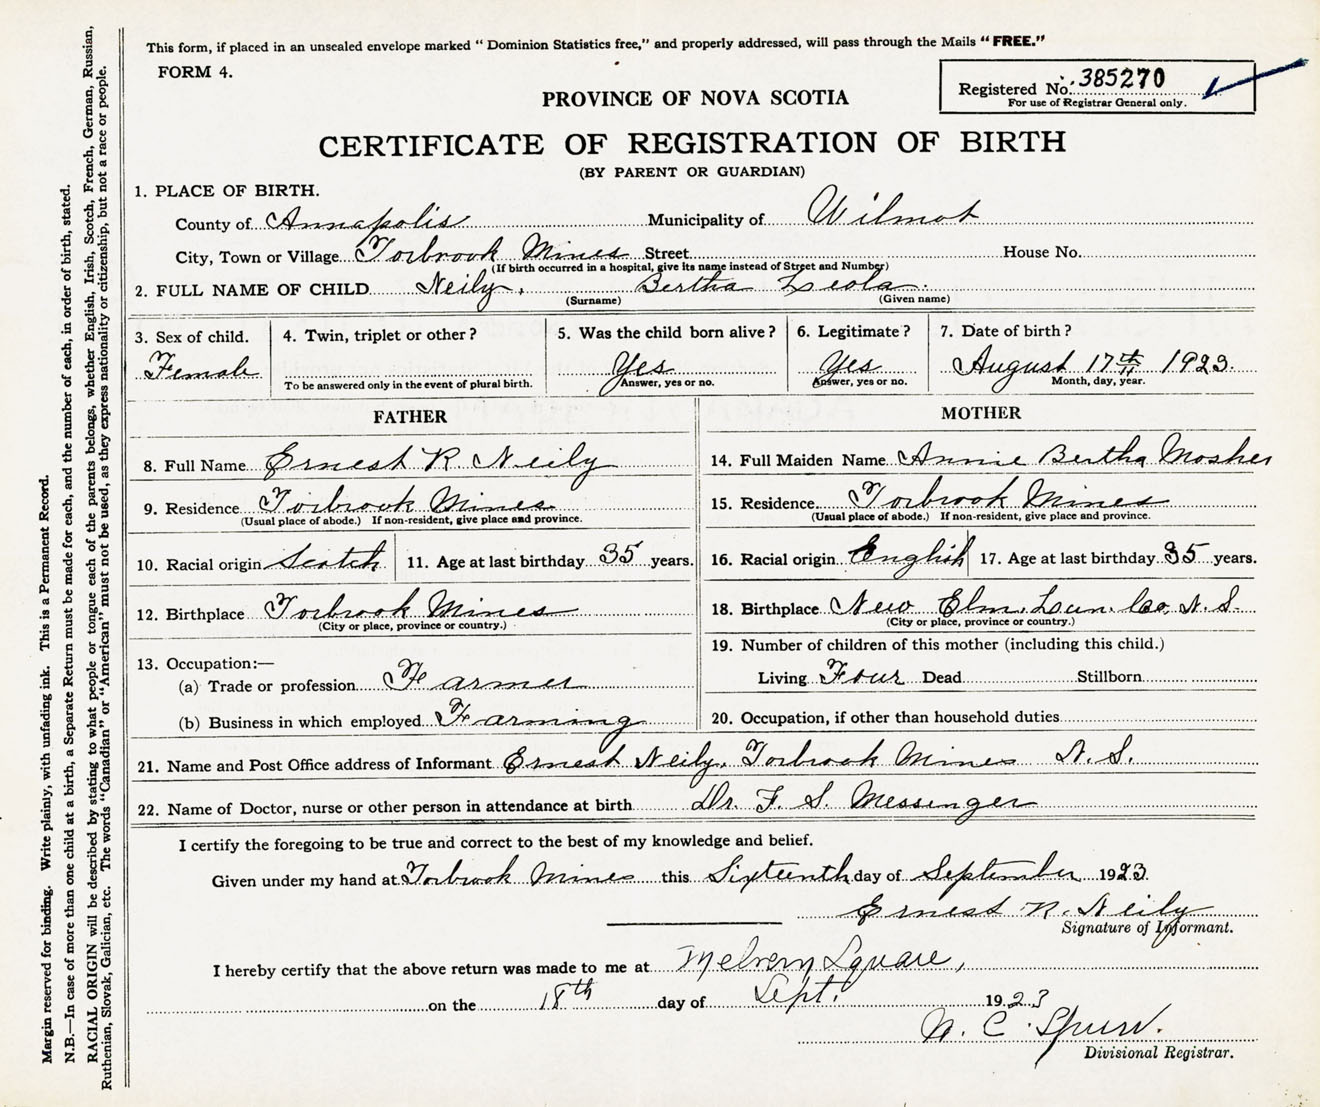 This form, if placed in an unsealed envelope marked “ Dominion Statistics free,” and properly addressed, will pass through the Mails “ FREE.”
FORM 4.
Registered No. 385270
For use of Registrar General only.
PROVINCE OF NOVA SCOTIA
CERTIFICATE OF REGISTRATION OF BIRTH
(BY PARENT OR GUARDIAN)
1. PLACE OF BIRTH.
County of Annapolis Municipality of Wilmot
City, Town or Village Torbrook Mines Street House No.
(If birth occurred in a hospital, give its name instead of Street and Number)
2. FULL NAME OF CHILD Neily, Bertha Leola.
(Surname) (Given name)
3. Sex of child. 4. Twin, triplet or other ? 5. Was the child born alive ? 6. Legitimate ? 7. Date of birth ?
Female Yes Yes August 17th 1923.
To be answered only in the event of plural birth. Answer, yes or no. Answer, yes or no. Month, day, year.
FATHER MOTHER
8. Full Name Ernest R Neily 14. Full Maiden Name Annie Bertha Mosher
9. Residence Torbrook Mines 15. Residence Torbrook Mines
(Usual place of abode.) If non-resident, give place and province. (Usual place of abode.) If non-resident, give place and province.
10. Racial origin Scotch 11. Age at last birthday 35 years. 16. Racial origin English 17. Age at last birthday 35 years.
12. Birthplace Torbrook Mines 18. Birthplace New Elm, Lun. Co, N. S.
(City or place, province or country.) (City or place, province or country.)
13. Occupation:— 19. Number of children of this mother (including this child.)
(a) Trade or profession Farmer Living Four Dead Stillborn
(b) Business in which employed Farming 20. Occupation, if other than household duties
21. Name and Post Office address of Informant Ernest Neily, Torbrook Mines N. S.
22. Name of Doctor, nurse or other person in attendance at birth Dr. F. S. Messenger
I certify the foregoing to be true and correct to the best of my knowledge and belief.
Given under my hand at Torbrook Mines this Sixteenth day of September 1923.
Ernest R. Neily
Signature of Informant.
I hereby certify that the above return was made to me at Melvern Square,
on the 18th day of Sept. 1923
C. Spurr.
Divisional Registrar.
Margin reserved for binding. Write plainly, with unfading ink. This is a Permanent Record.
N.B.—In case of more than one child at a birth, a Separate Return must be made for each, and the number of each, in order of birth, stated.
RACIAL ORIGIN will be described by stating to what people or tongue each of the parents belongs, whether English, Irish, Scotch, French, German, Russian,
Ruthenian, Slovak, Galician, etc. The words “Canadian” or “American” must not be used, as they express nationality or citizenship, but not a race or people.